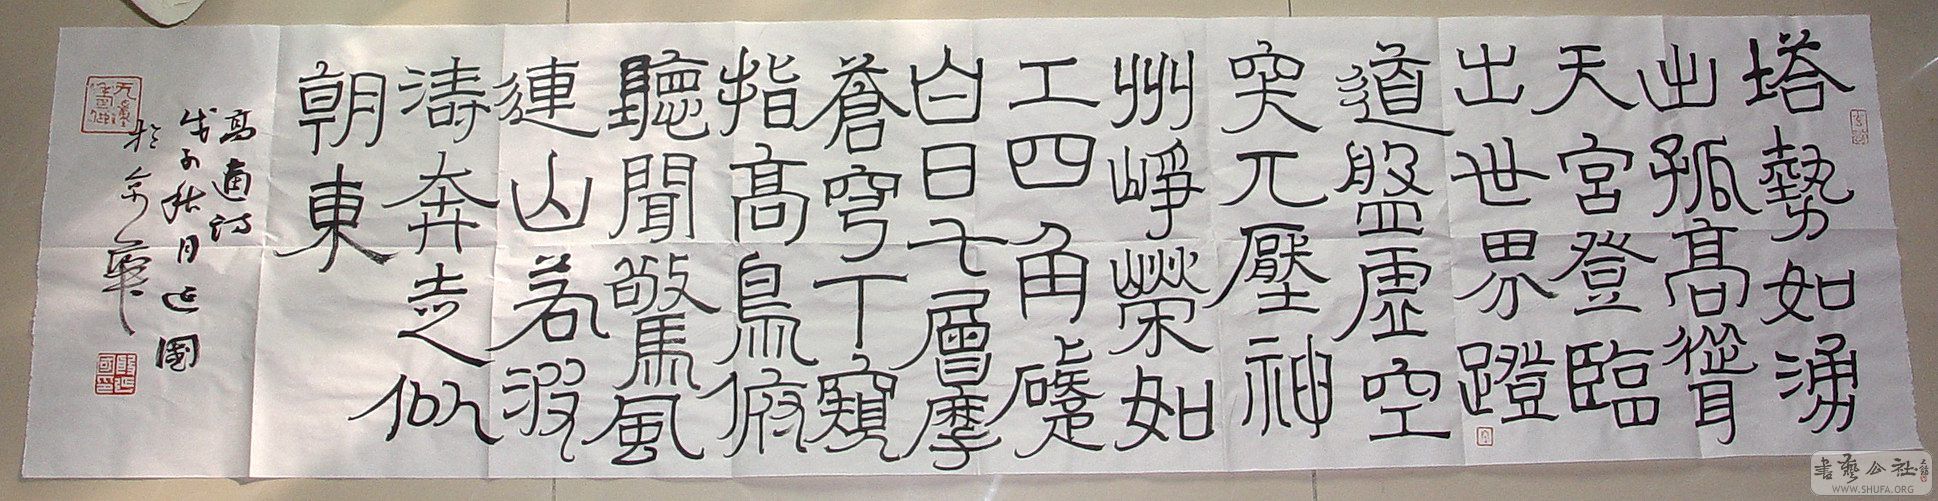 塔勢如湧
出孤高聳
天宮登臨
出世界蹬
道盤虛空
突兀壓神
州崢嶸如
工四角礙
白日七層摩
蒼穹下窺
指高鳥俯
聽聞驚風
連山若波
濤奔走似
朝東
高適詩
戊子秋月延國
於京華
書藝公社
WWW.SHUFA.ORG